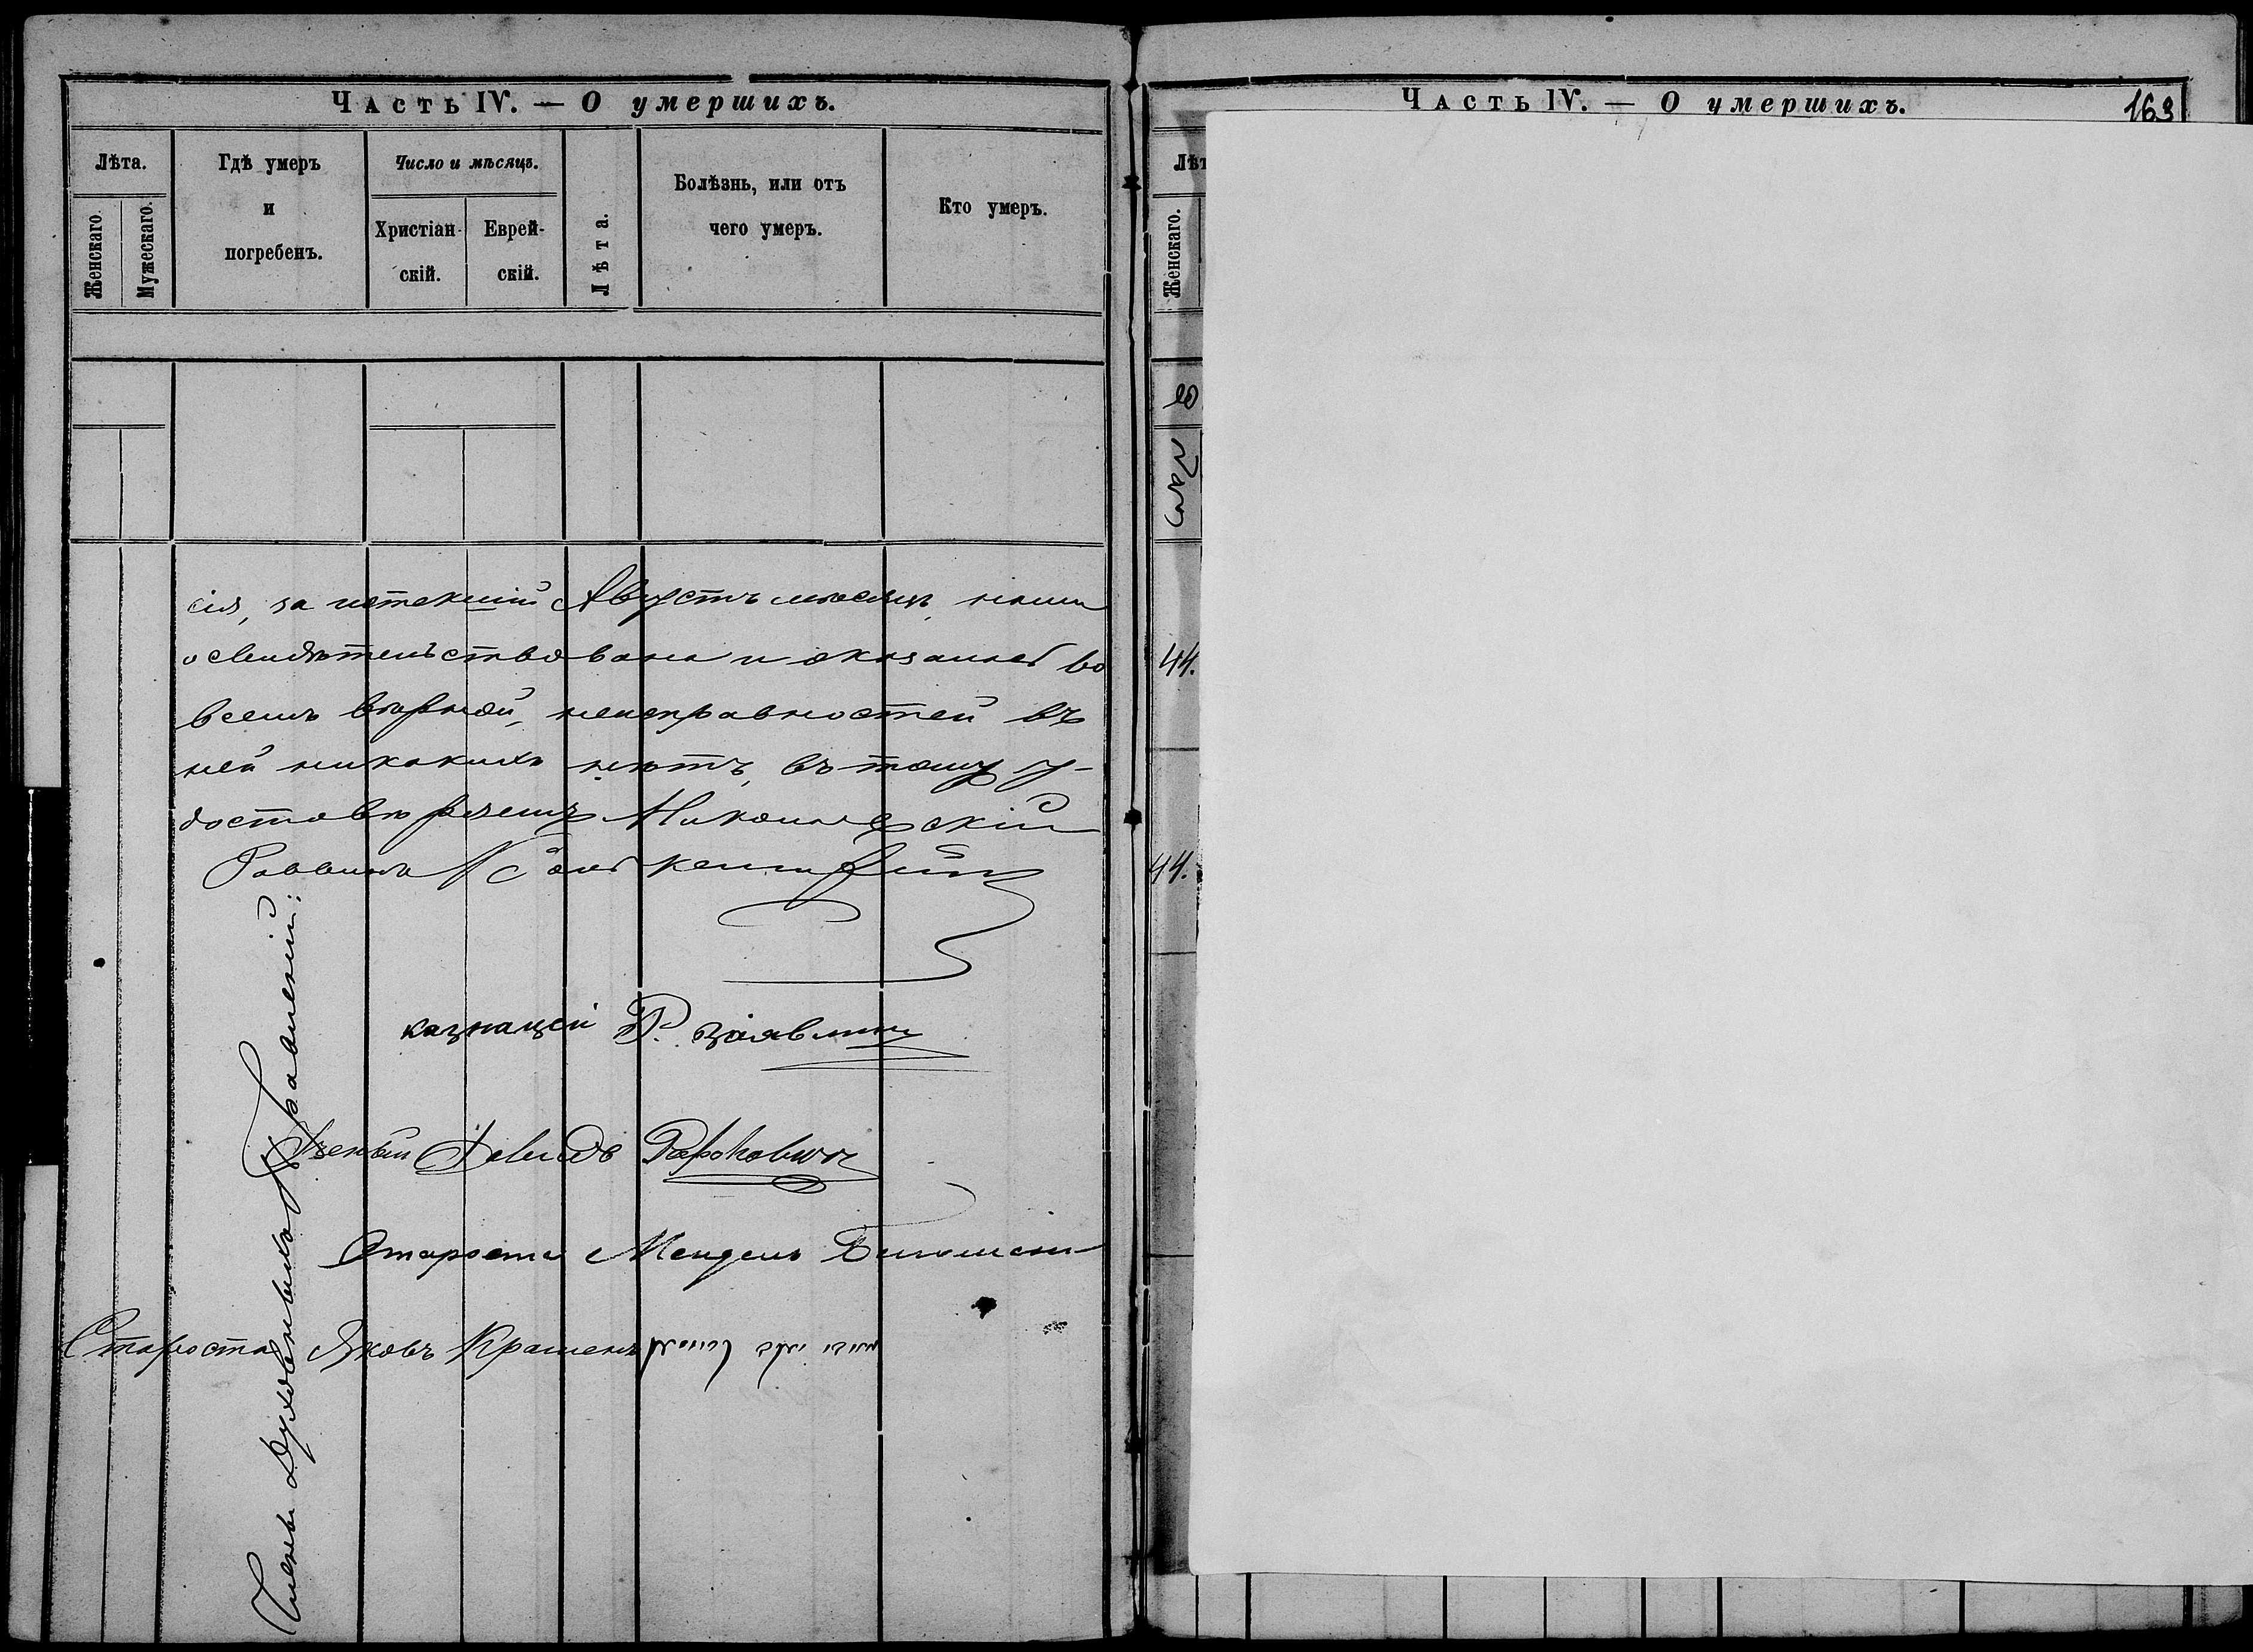 Часть IV. — О умершихъ.
Лѣта.
Женскаго.
Мужескаго.
Гдѣ умеръ
и
погребенъ.
Число и мѣсяцъ.
Христіан-
скій.
Еврей-
скій.
Лѣта.
Болѣзнь, или отъ
чего умеръ.
Кто умеръ.
сія, за истекшій Августъ мѣсяцъ, нами
освидѣтельствована и оказалась во
всемъ вѣрной, неисправностей въ
ней никакихъ нѣтъ, въ томъ у-
достовѣряемъ Николаевскій
Раввинъ
Члены Духовныхъ Правленій:
казначей
Ученый Давидъ
Староста Мендель
Староста Яковъ Крамень
Часть IV. — О умершихъ.
163
Лѣт
Женскаго.
44.
44.